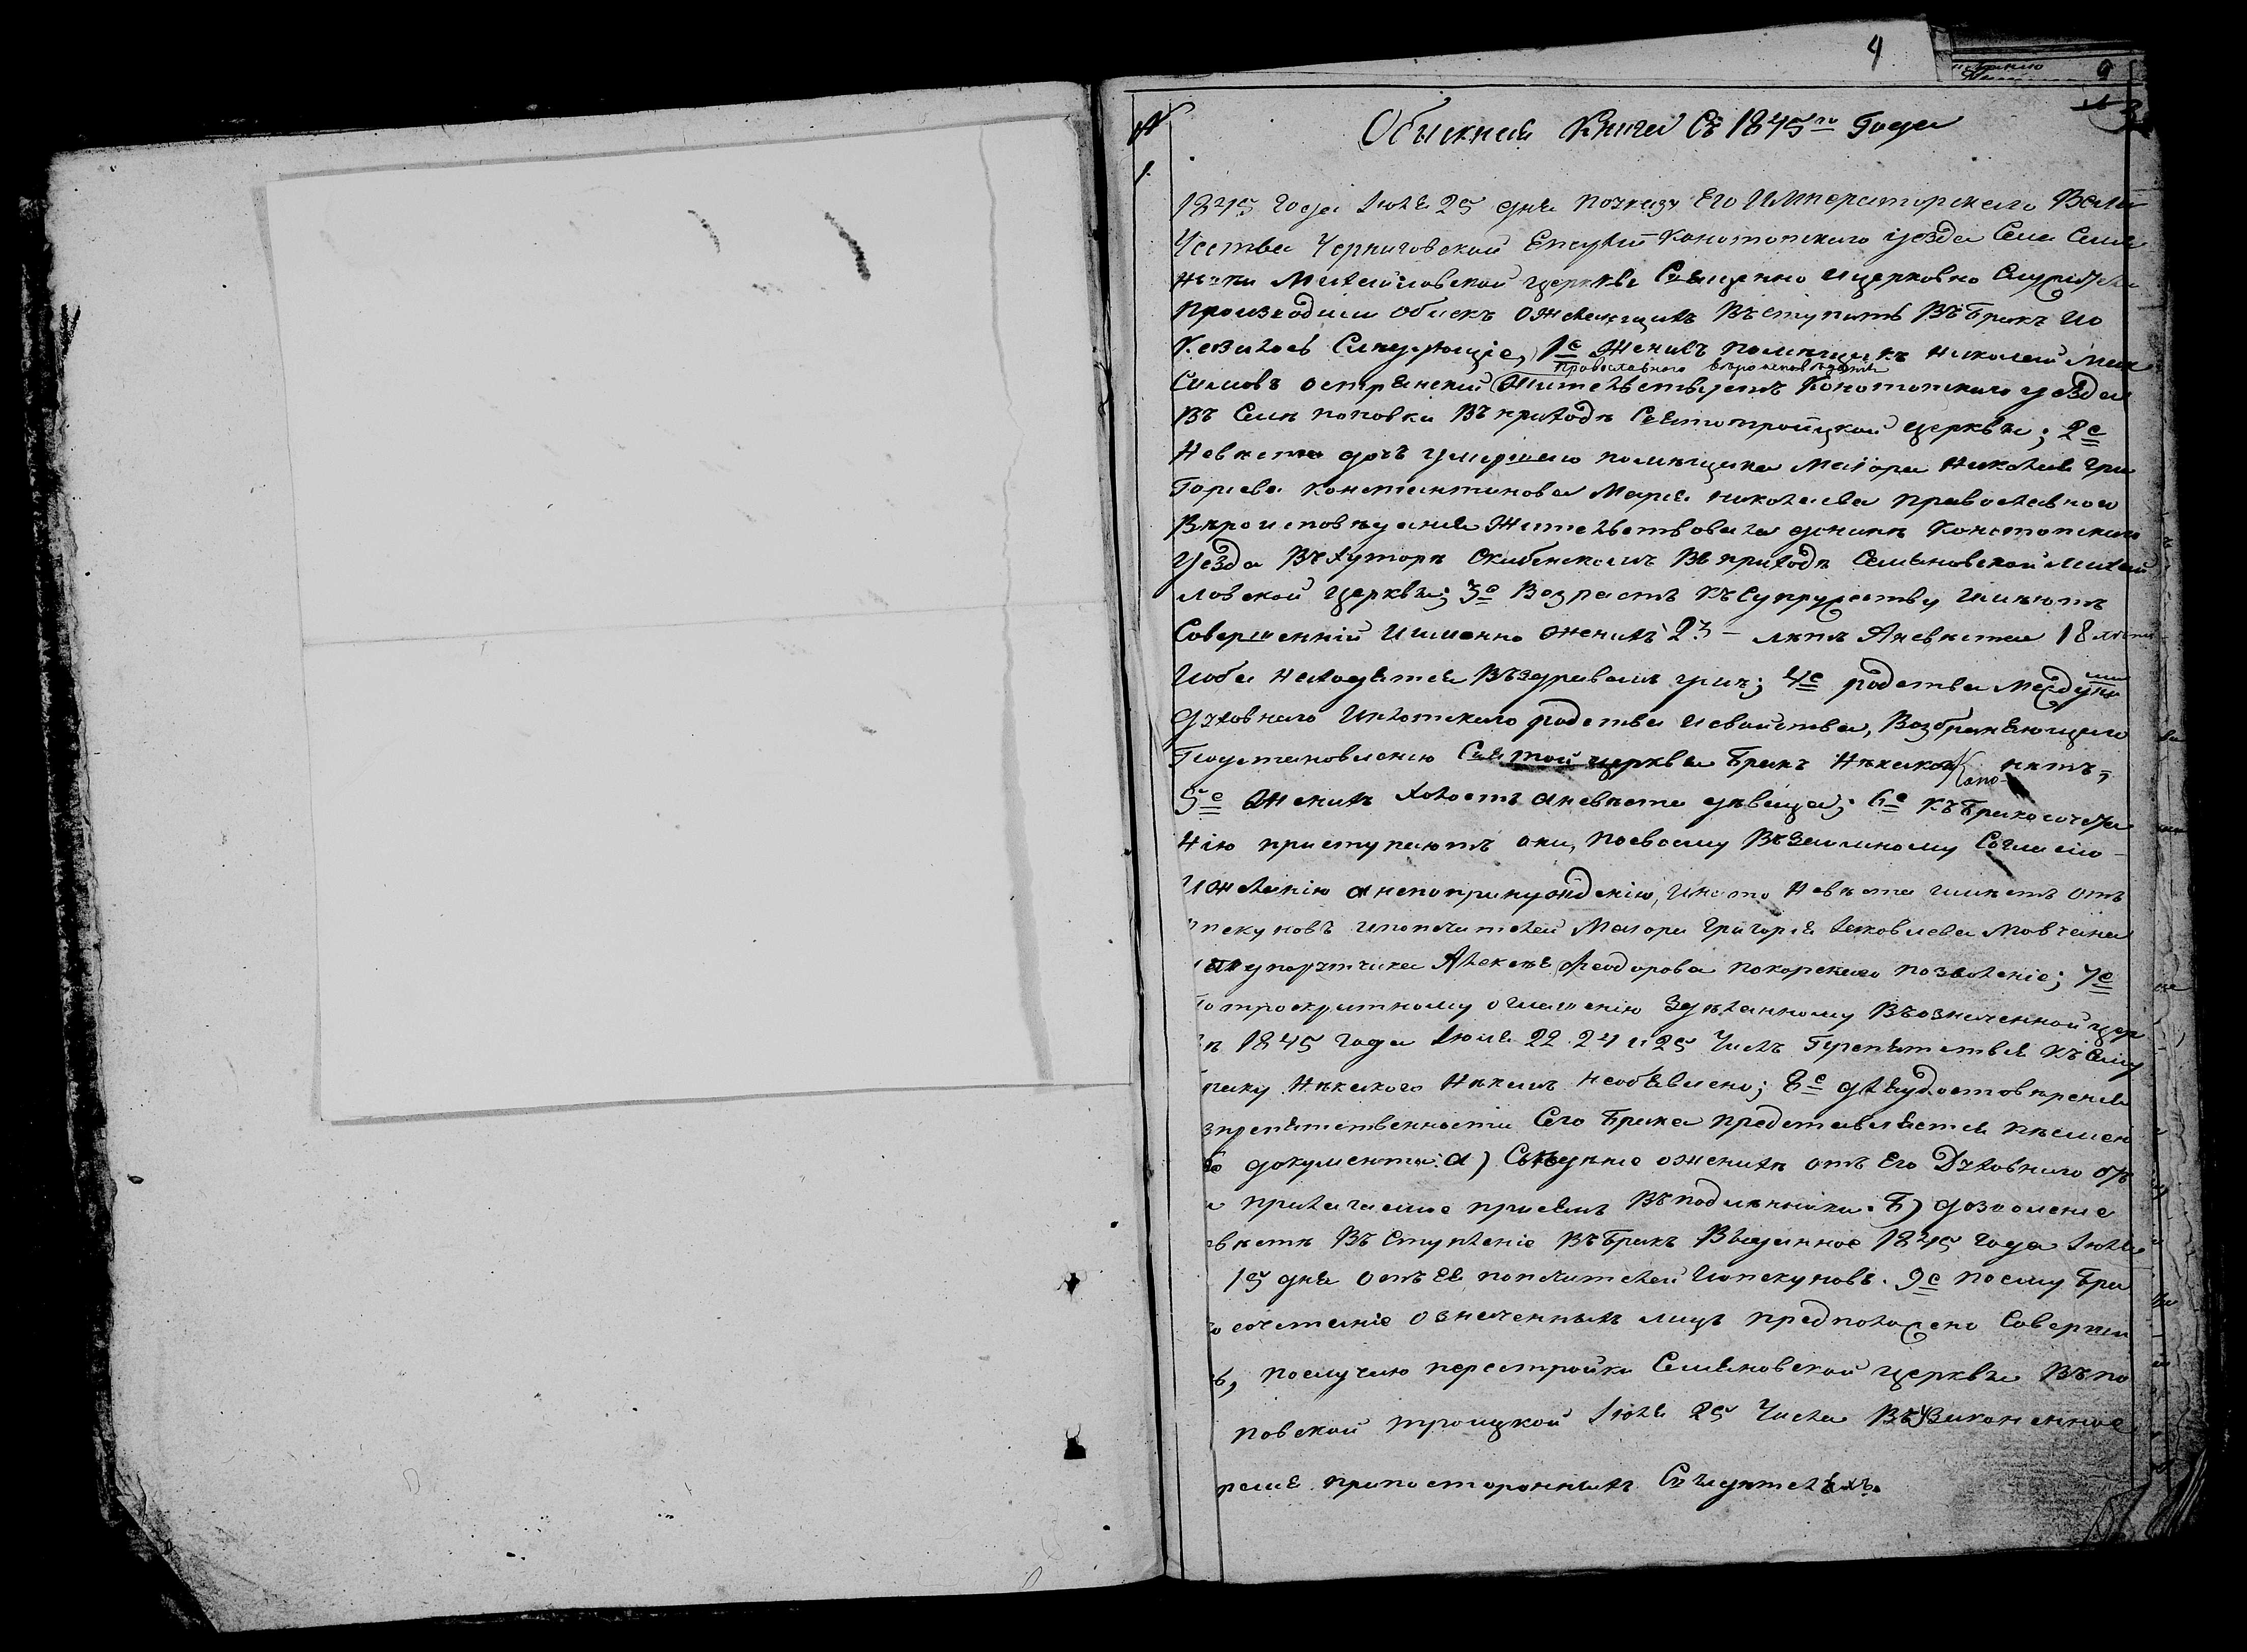 4
9
№
Обискная Книга Съ 1845го Года
1.
1845 Года Іюля 25 дня поуказу Его Императорскаго Вели
Чества Черниговской Епархіи Конотопскаго уезда Села Семя
новки Михайловской церкви Священно ицерковно Служители
производили обискъ ожелающихъ Вступить ВъБракъ ио
Казалось Слидующіе, 1е Женихъ помищикъ николай Мак
православного вероисповедания
Симовъ острянский Жительствуетъ Конотопскаго уезда
Въ Селе поповки Въ приходи Святотройцкой церквы; 2е
Невиста дочъ умершаго помищика Маіора Николая Гри
Горіева Константинова Марія николаева православного
Вироисповиданія Жительствовала донине Конотопского
Уезда Въ хутори Скибенскомъ Въ приходи Семяновской Михай
ловской церквы; 3е Возрастъ къ Супружеству имиютъ
Совершенній иименно женихъ 23 – литъ Аневиста 18 лит
Иоба находятся Въздравомъ уми; 4е родства Между ими
духовнаго иплотскаго родства исвойства, Возбраняющаго
Поустановленію Святой церквы Бракъ Никаког нитъ;
5е Женихъ холостъ аневиста дивица; 6е къ Бракосочета
Нію приступаютъ они, посвоему Взаимному Согласію
Ижеланію анепопринужденію, инато Невиста имиетъ отъ
пекуновъ ипопичителей Маіора Григорія Яковлева Мовчана
поручика Алексия Феодорова покорскаго позволеніе; 7е
по троекритному оглашенію Здиланному Възначенной цер
ви 1845 года Іюля 22. 24 и 25 Числъ Препятствія къ Сему
раку Никакого Никимъ необявлено; 8е для удостовиренія
зпрепятственности Сего Брака представляется писмен
е документи: а) Свидиніе оженихи отъ Его Духовнаго от
прилагаемое присемъ Въ подлинники. Б) дозволение
висти Въ Ступленіе ВъБракъ Виданное 1845 года Іюля
15 дня отъ Ея попичителей иопекуновъ. 9е посему Бра
осочетаніе означеннихъ лицъ предположено Соверши
ъ, послучаю перестройки Семяновской церквы Въ по
повской троицкой Іюля 25 Числа Въ Узаконенное
ремя припостороннихъ Свидителяхъ.